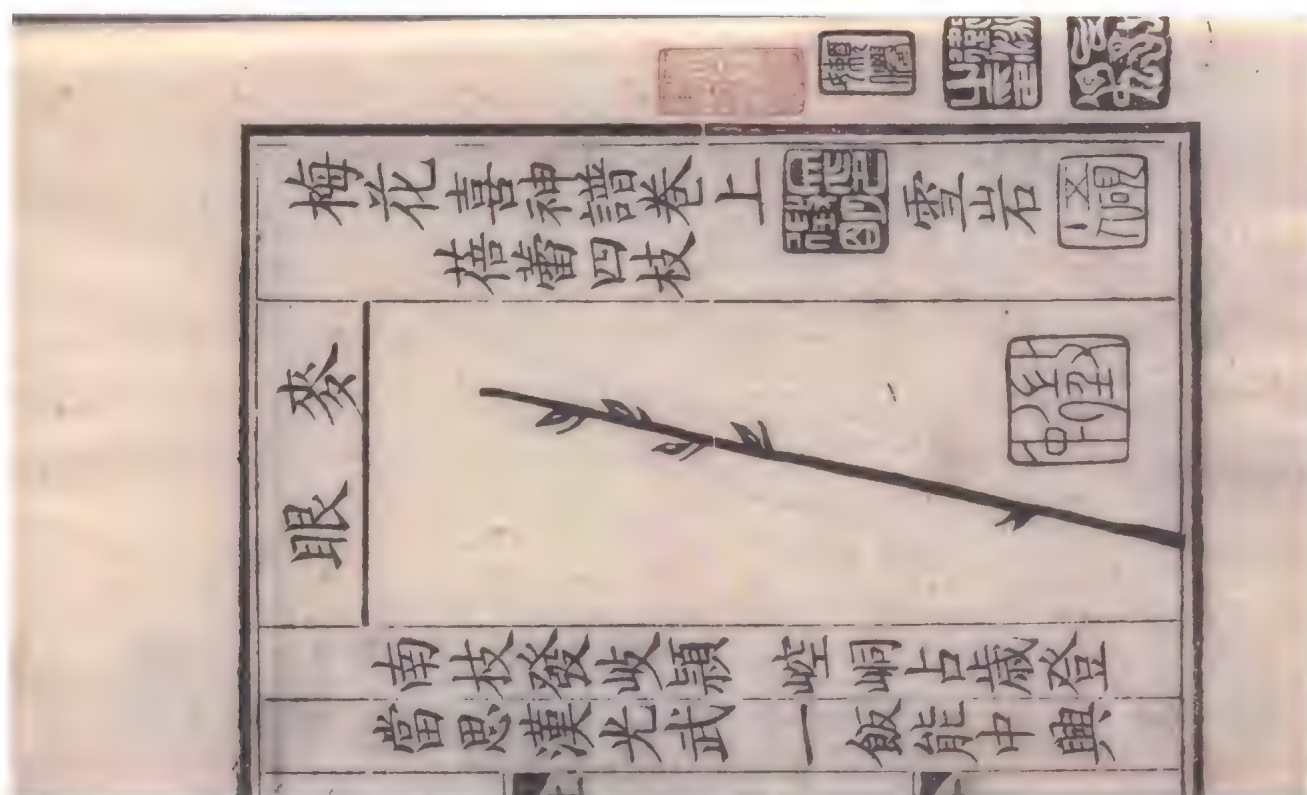 梅花喜神譜卷上 雪岩
蓓蕾四枝
麥眼
南枝發岐穎 崆峒占歲登
當思漢光武 一飯能中興